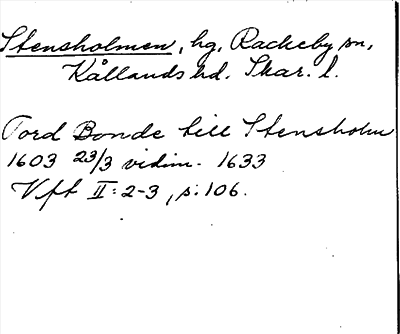 Stensholmen, hg, Rackeby sn,
Kållands hd. Skar. l.
Tord Bonde till Stensholm
1603 23/3 vidim. 1633
Vft II:2-3, s. 106.